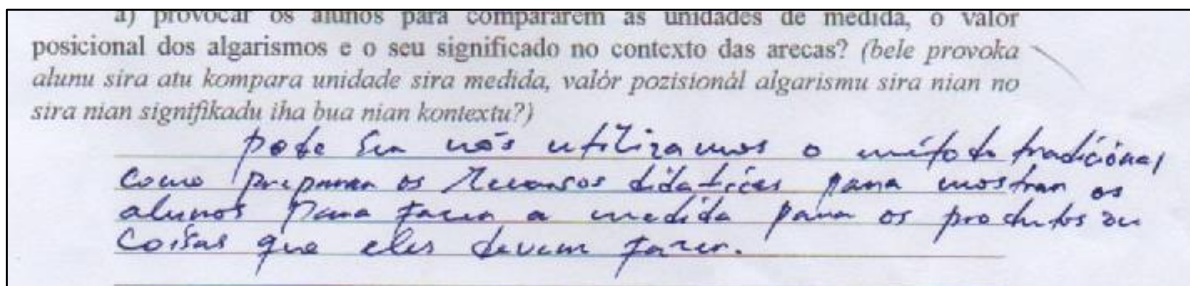 a) provocar os alunos para compararem as unidades de medida, o valor
posicional dos algarismos e o seu significado no contexto das arecas? (bele provoka
alunu sira atu kompara unidade sira medida, valór pozisionál algarismu sira nian no
sira nian signifikadu iha bua nian kontextu?)
pode ser nós utilizamos o método tradicional
como preparar os recursos didáticos para mostrar os
alunos para fazer a medida para os produtos ou
coisas que eles devem fazer.